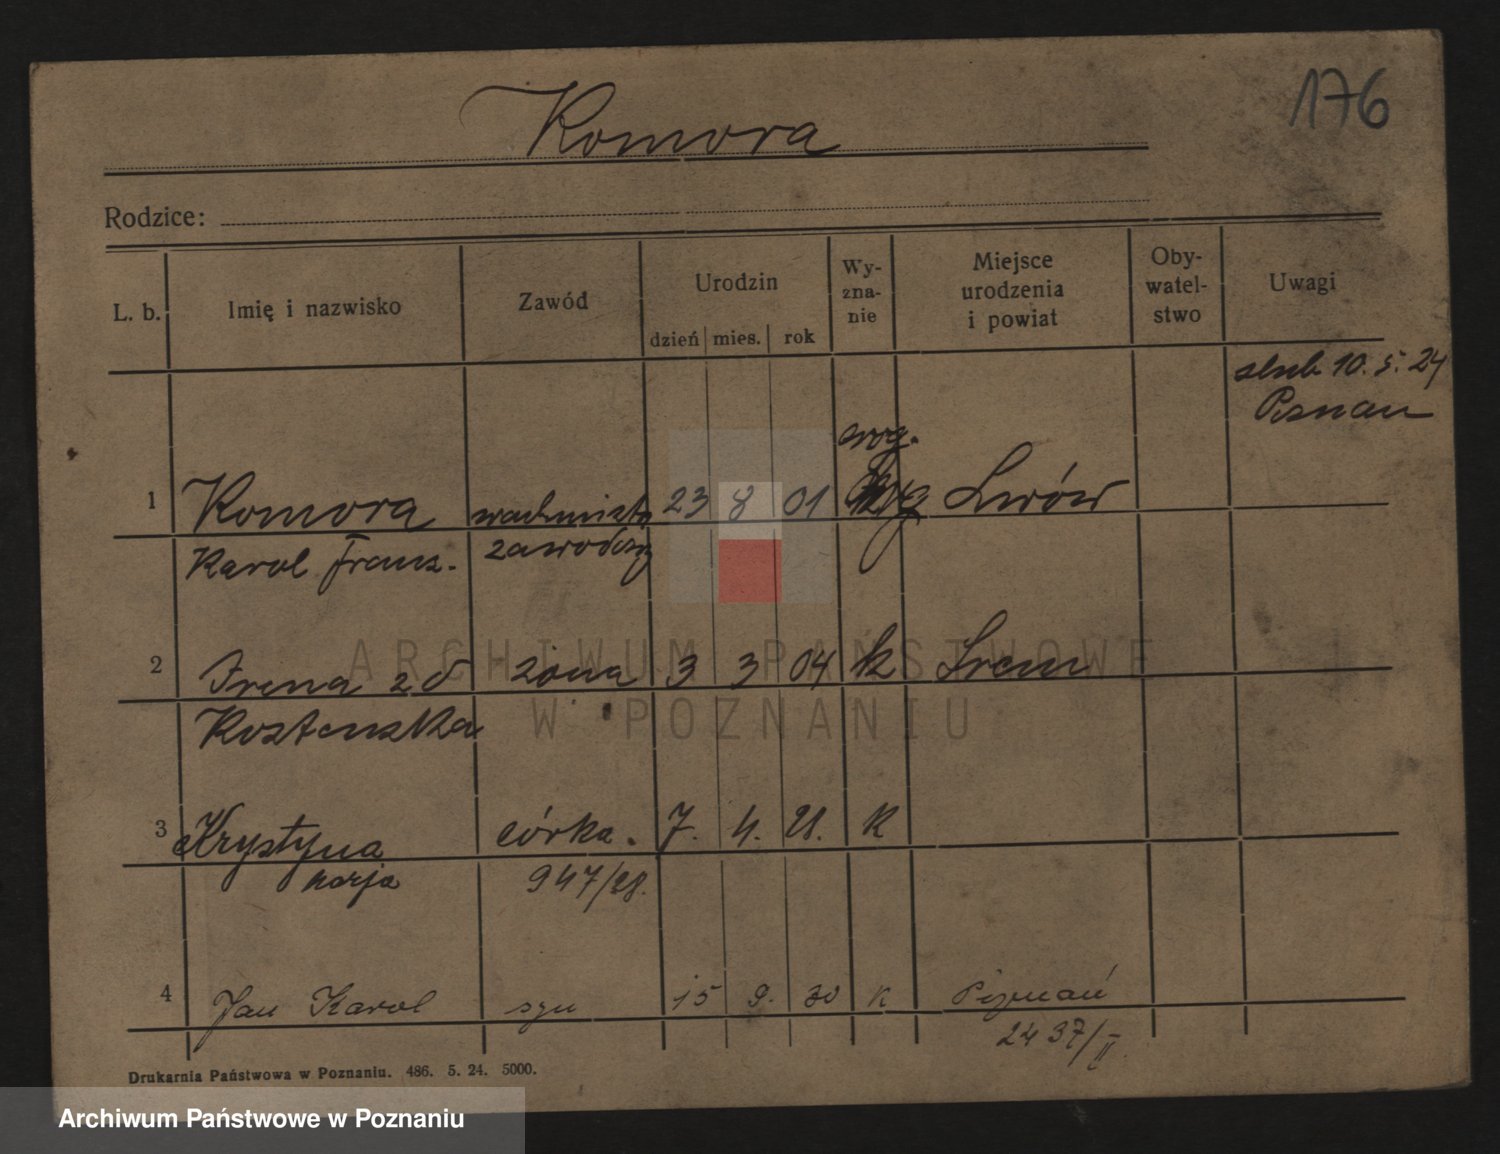 176
Komora
Rodzice:
L. b. Imię i nazwisko Zawód Urodzin dzień mies. rok Wy-zna-nie Miejsce urodzenia i powiat Oby-watel-stwo Uwagi
ślub 10. 5. 24
Poznań
1 Komora wachmistrz 23 8 01 Lwów
Karol Franc. zawodowy
2 Irena z d żona 3 3 04 k Śrem
Koztenska
3 Krystyna córka. 7. 4. 28. K
Marja 947/28.
4 Jan Karol syn 15 9. 30 K Poznań
2437/II.
Drukarnia Państwowa w Poznaniu. 486. 5. 24. 5000.
ARCHIWUM PAŃSTWOWE
W POZNANIU
Archiwum Państwowe w Poznaniu